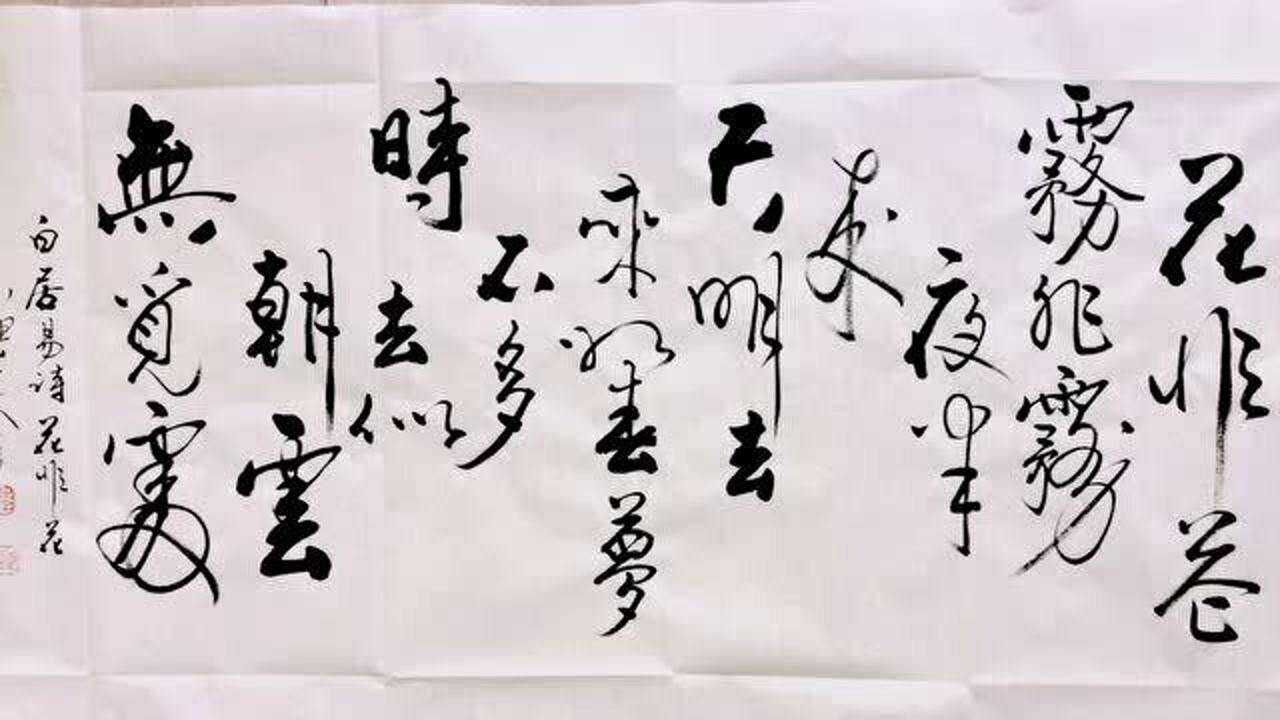 花非花
霧非霧
夜半
來
天明去
來如春夢
不多
時去似
朝雲
無覓處
白居易詩花非花